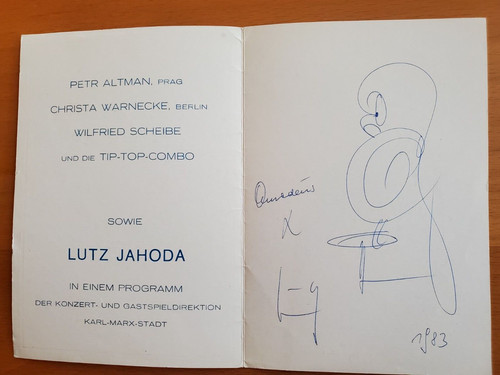 PETR ALTMAN, PRAG
CHRISTA WARNECKE, BERLIN
WILFRIED SCHEIBE
UND DIE TIP-TOP-COMBO
SOWIE
LUTZ JAHODA
IN EINEM PROGRAMM
DER KONZERT- UND GASTSPIELDIREKTION
KARL-MARX-STADT
Amadeus
1983